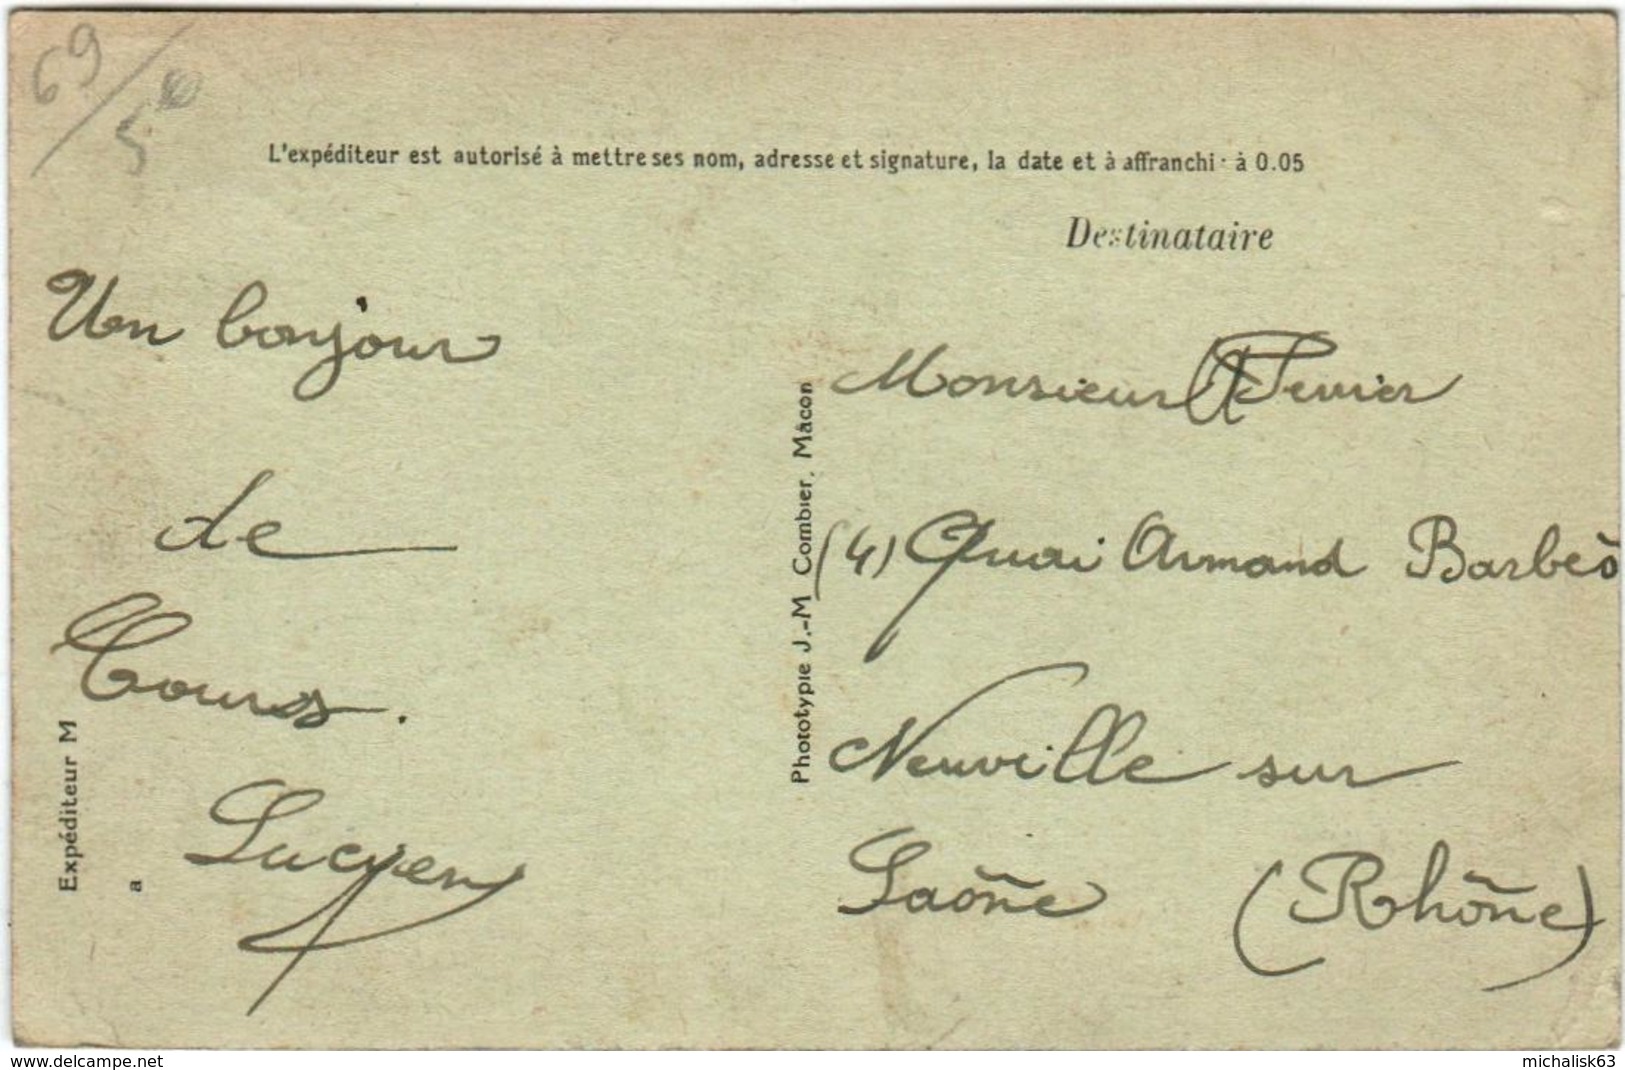 69
5
L'expéditeur est autorisé à mettre ses nom, adresse et signature, la date et à affranchi à 0.05
Destinataire
Un bonjour
de
Cours.
Lucyen
Expéditeur M
a
Phototypie J.-M Combier, Mâcon
Monsieur
(4) Quai Armand Barbès
Neuville sur
Saône (Rhône)
www.delcampe.net
michalisk63